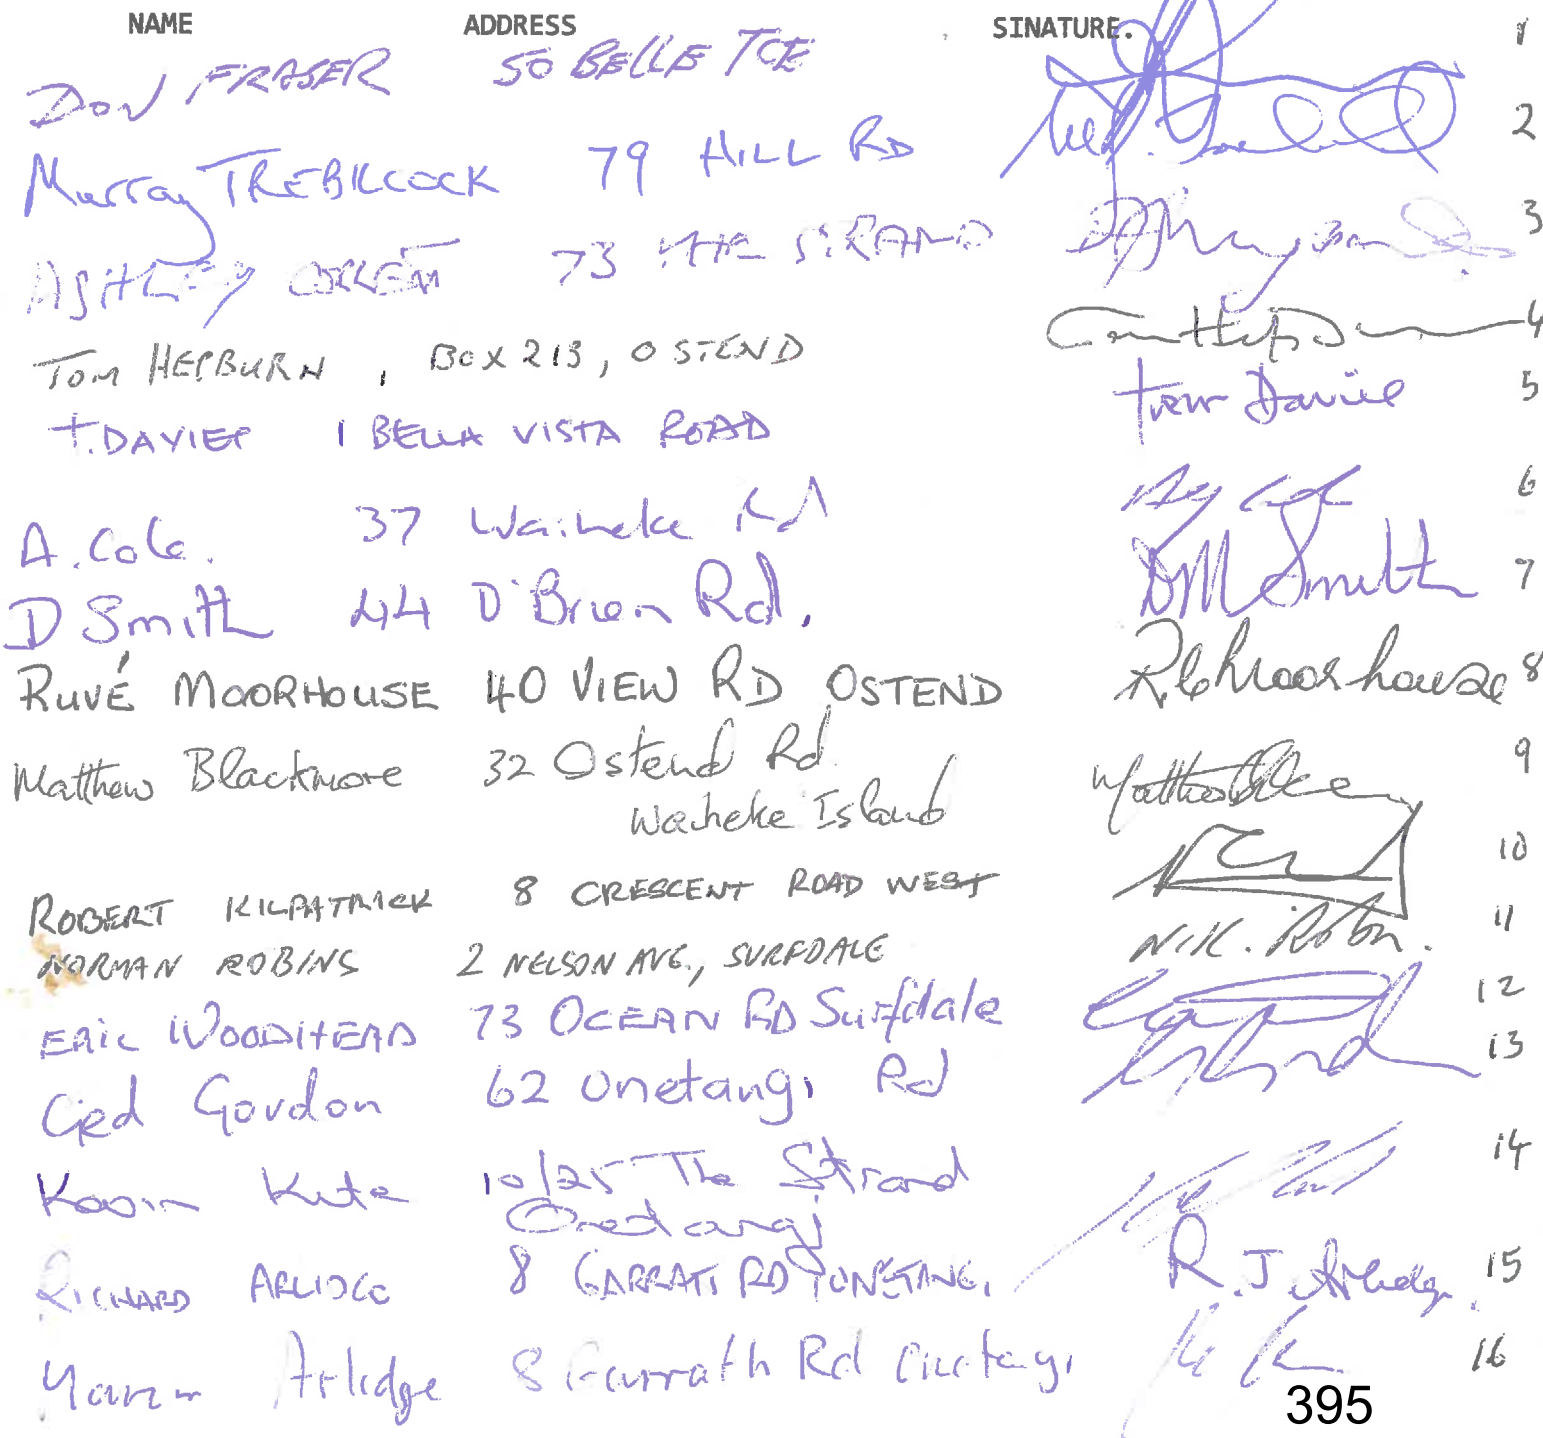 NAME ADDRESS SINATURE.
DON FRASER 50 BELLE TCE 1
Murray TREBILCOCK 79 HILL RD 2
ASHLEY 73 THE STRAND 3
TOM HEPBURN, BOX 213, OSTEND Tom Hepburn 4
T. DAVIES 1 BELLA VISTA ROAD Trevor Davies 5
A. Cole. 37 Waiheke Rd 6
D Smith 44 O'Brien Rd. DM Smith 7
RUVÉ MOORHOUSE 40 VIEW RD OSTEND R.C Moorhouse 8
Matthew Blackmore 32 Ostend Rd. 9
Waiheke Island
ROBERT KILPATRICK 8 CRESCENT ROAD WEST 10
NORMAN ROBINS 2 NELSON AVE., SURFDALE N.K. Robins. 11
ERIC WOODHEAD 73 OCEAN RD Surfdale 12
Ged Gordon 62 Onetangi Rd 13
10/25 The Strand 14
Onetangi
RICHARD ARLIDGE 8 GARRATT RD ONETANGI R.J. Arlidge. 15
Arlidge 8 Garrath Rd Onetangi 16
395